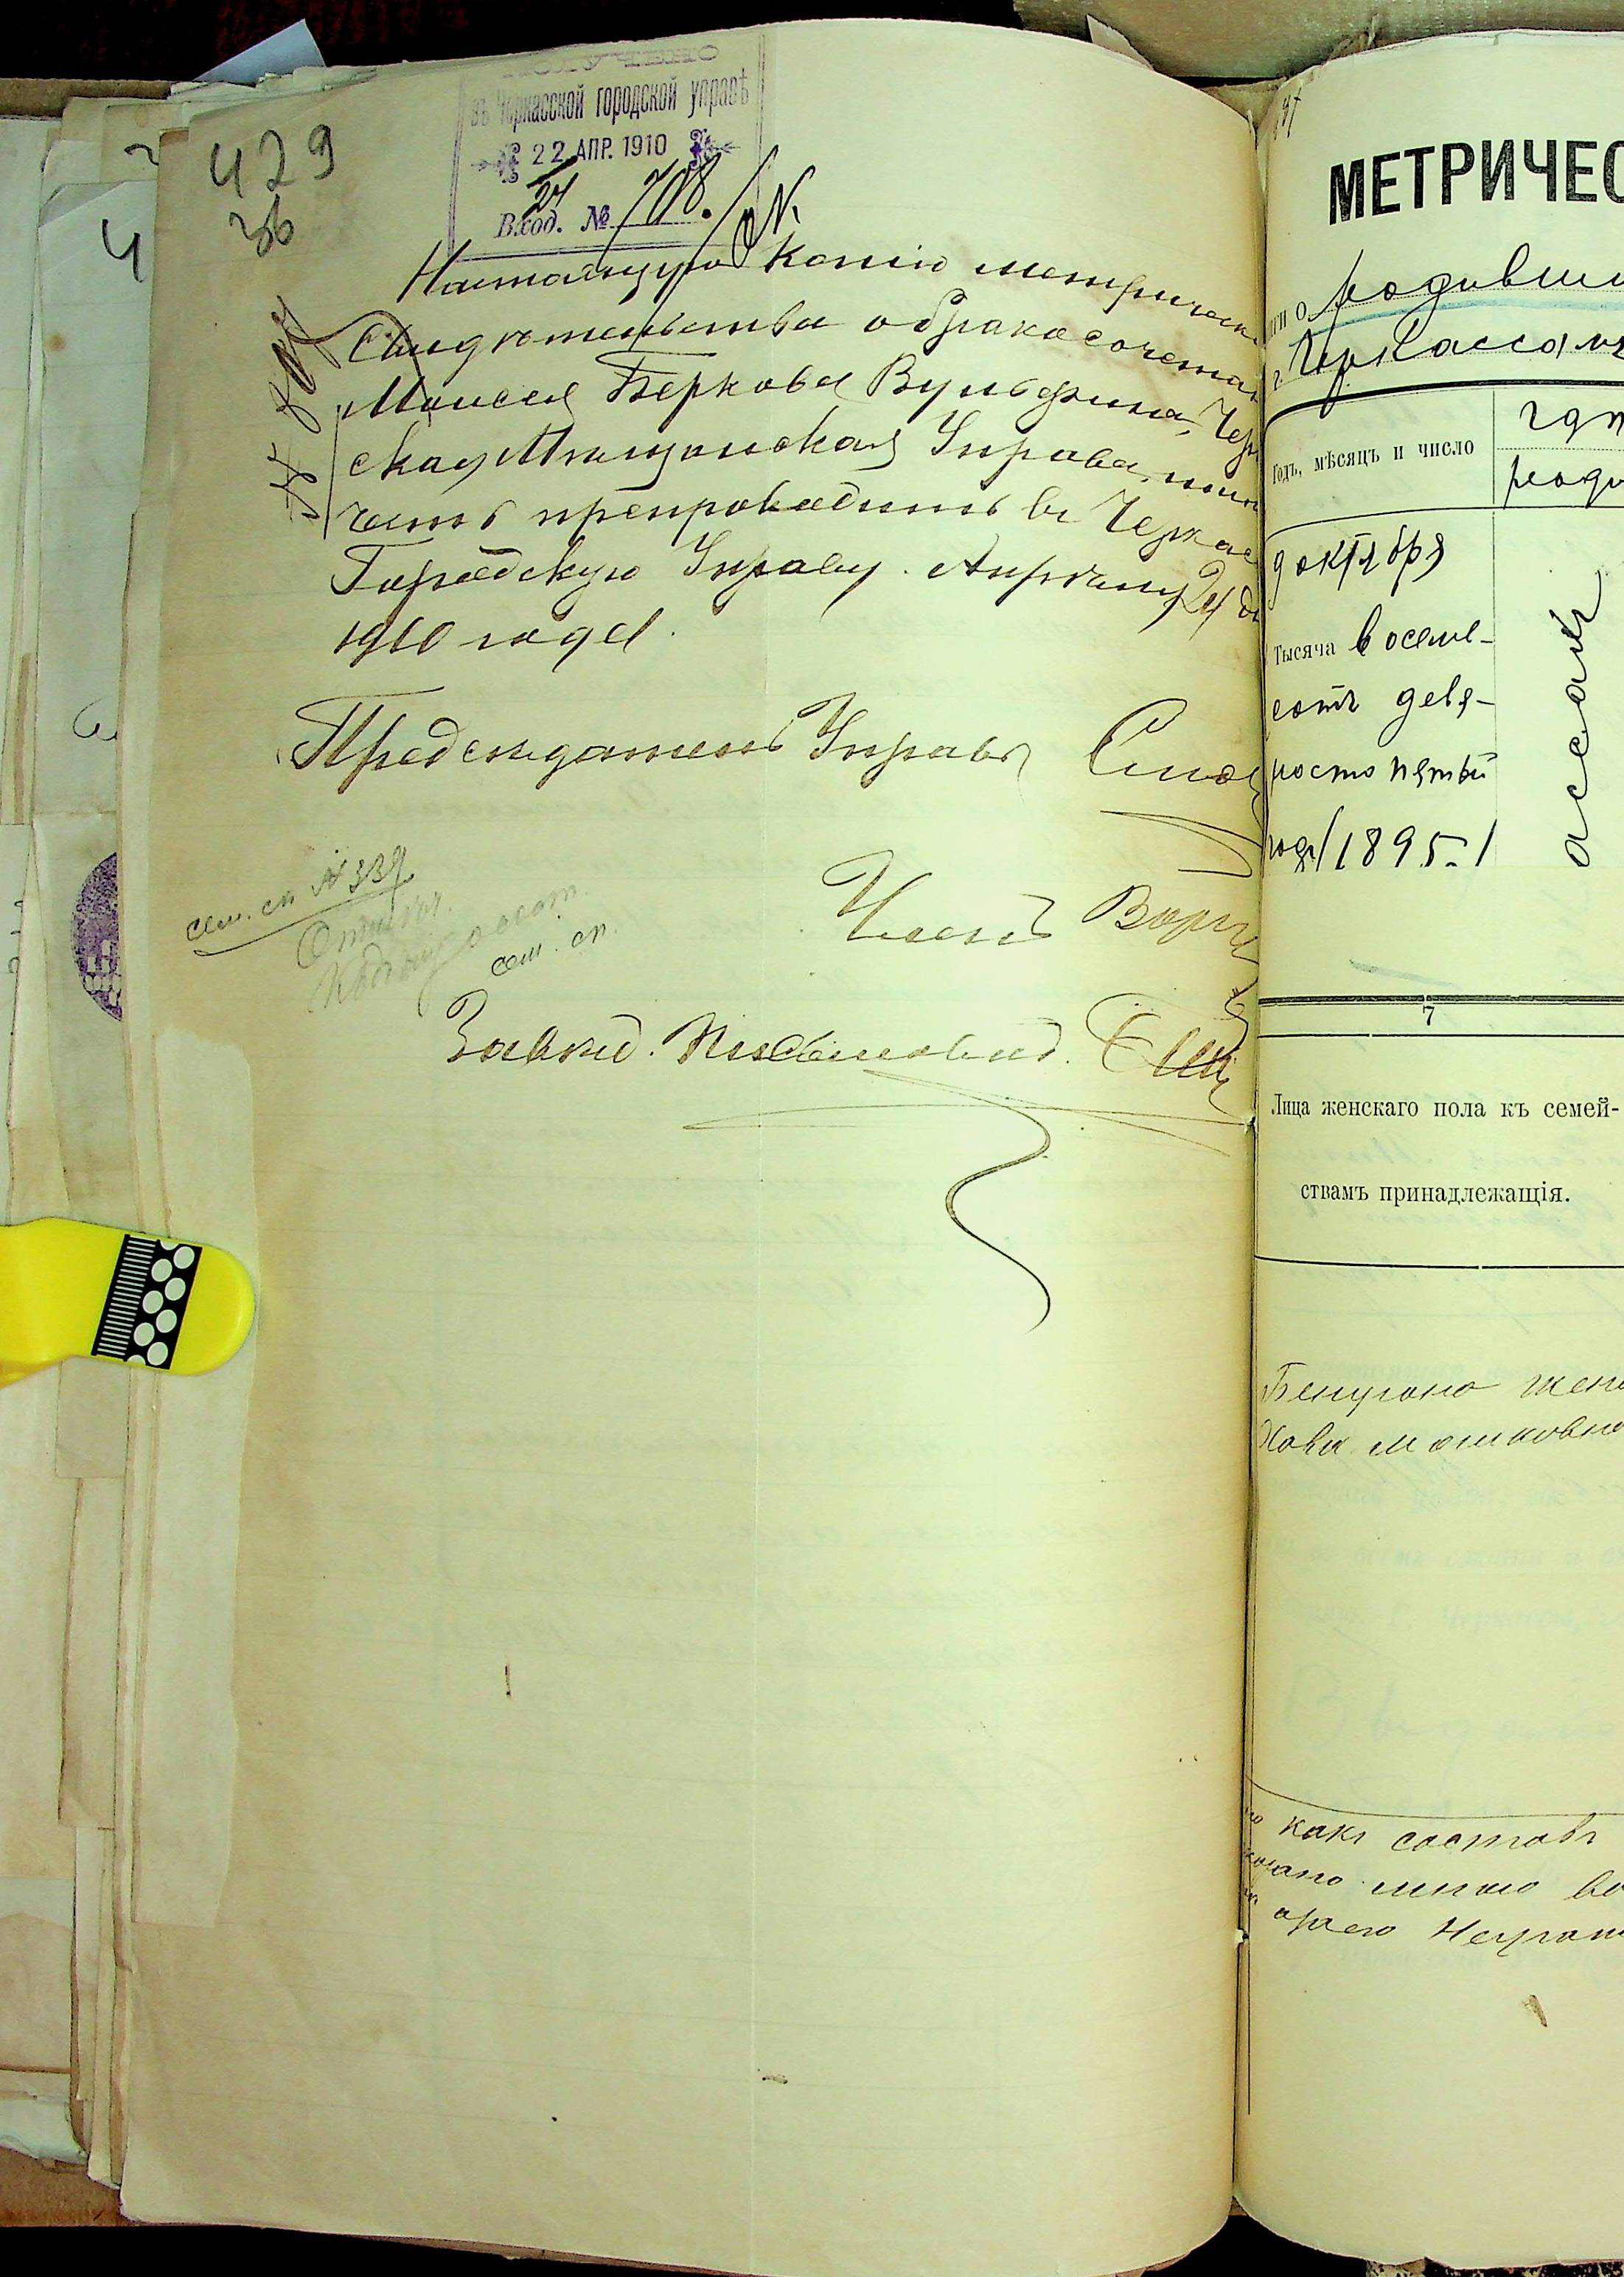 429
зв
ПОЛУЧЕНО
въ Черкасской городской управѣ
22 АПР. 1910
24
Вход. № 708.
Настоящую копію метрическ
Свидѣтельства о бракосочетан
Моисея Беркова Вульфина, Чер
ская Мѣщанская Управа, имѣ
честь препроводить въ Черкас
Городскую Управу. Апрѣля 21 д
1910 года.
Предсѣдатель Управы
Членъ
Завѣд. Письмовод.
сем. сп. № 339
сем. сп.
Ч
МЕТРИЧЕС
ги о родивши
г. Черкассахъ
Годъ, мѣсяцъ и число
гдѣ
роди
9 октября
Тысяча восемь-
сотъ девя-
носто пятый
годъ /1895./
7
Лица женскаго пола къ семей-
ствамъ принадлежащія.
Бенціона жена
Хова Мошковна
какъ состав
мною во